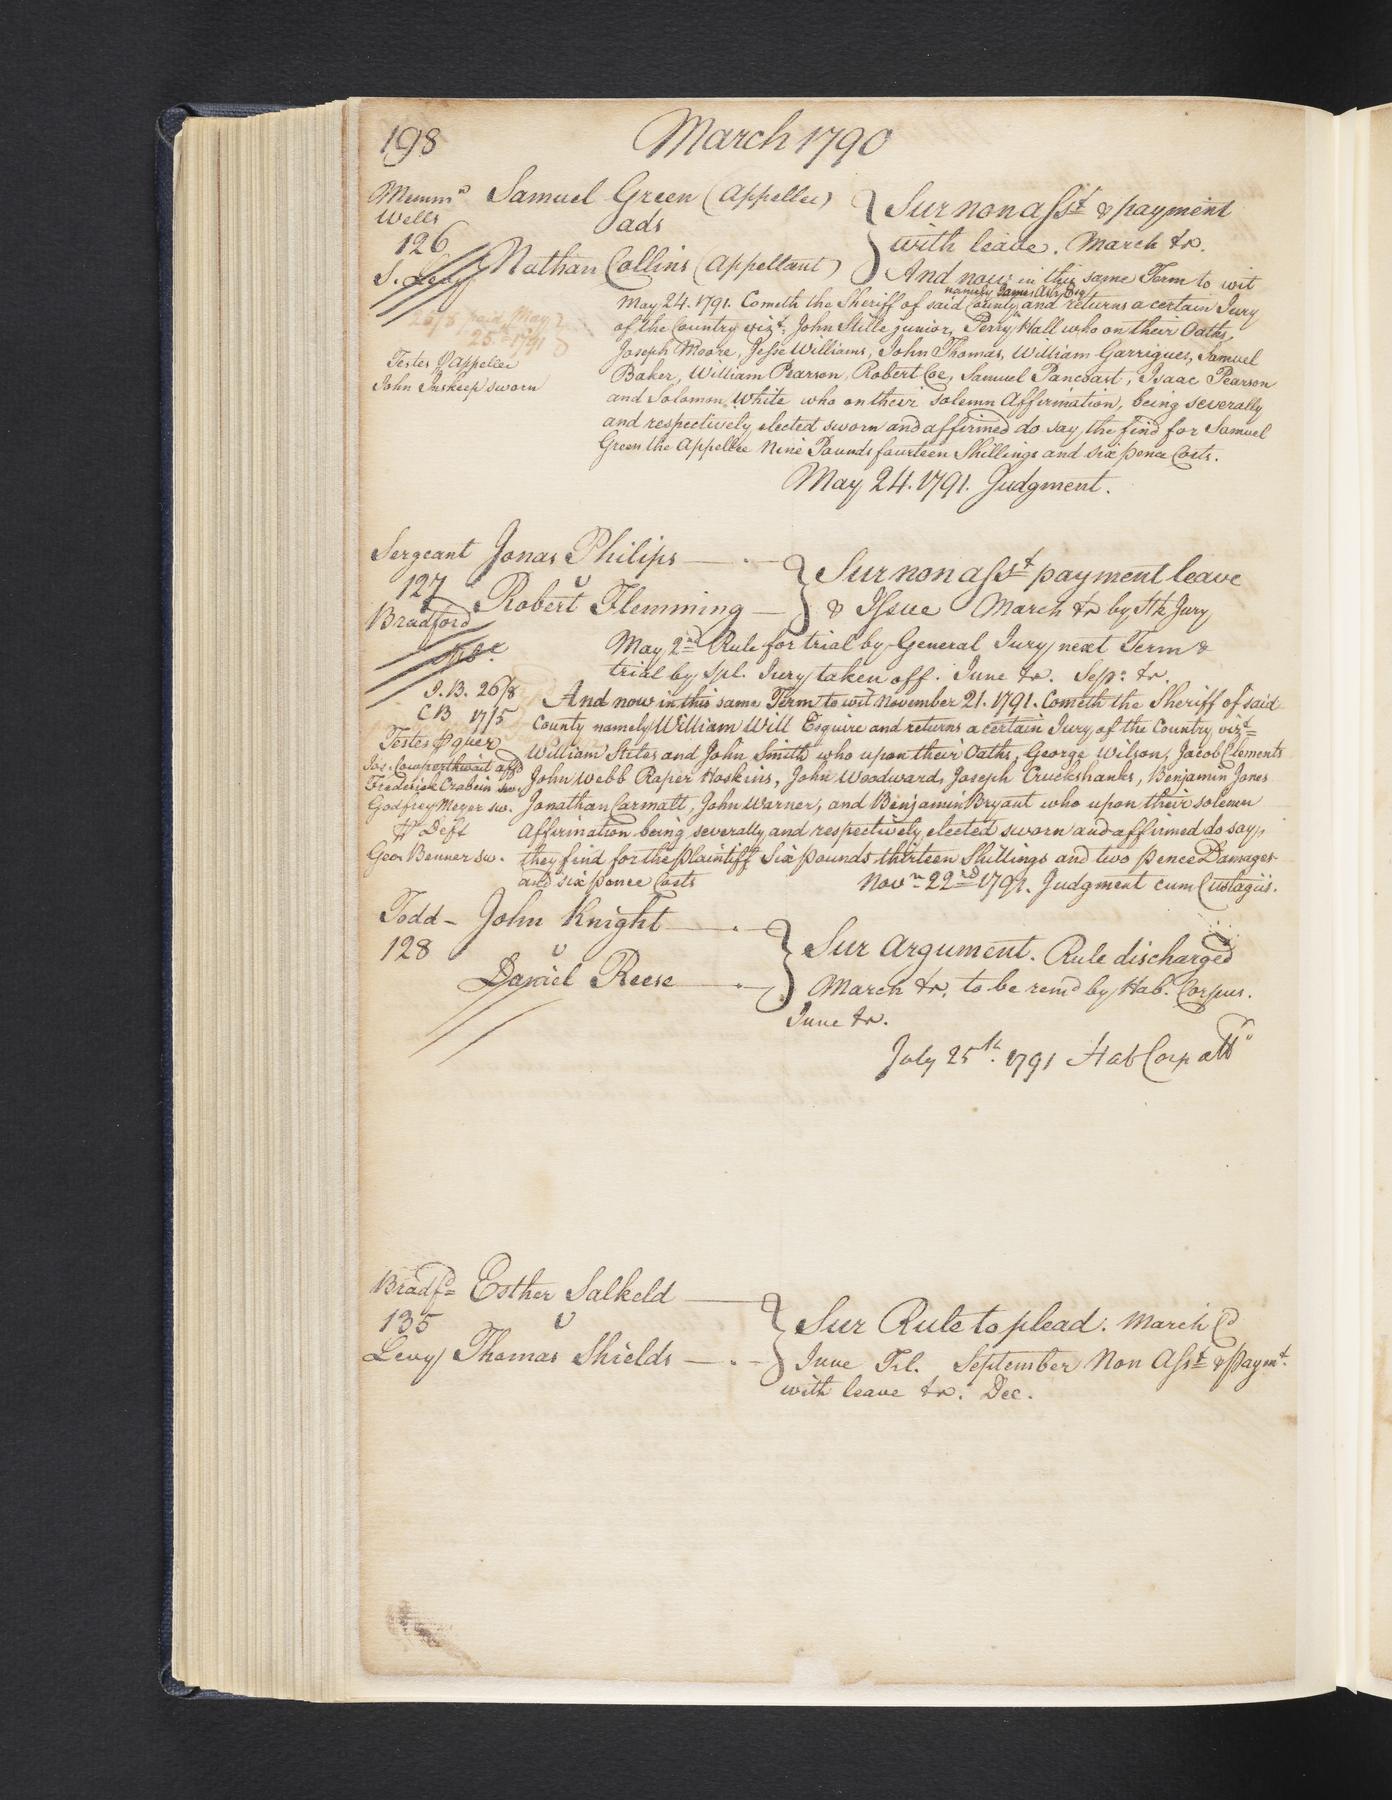 198 March 1790
Samuel Green (Appellee)
ads
Nathan Collins (Appellant)
Wells
126
S. Levy
Sur non Asst & payment
with leave. March tr.
And now in this same Term to wit
namely James Ash Esq
May 24. 1791. Cometh the Sheriff of said County and returns a certain Jury
of the Country vizt. John Stille junior, Perry Hall who on their Oaths,
Joseph Moore, Jesse Williams, John Thomas, William Garrigues, Samuel
Baker, William Pearson, Robert Coe, Samuel Pancoast, Isaac Pearson
and Solomon White who on their solemn Affirmation, being severally
and respectively elected sworn and affirmed do say the find for Samuel
Green the Appellee Nine Pounds fourteen Shillings and six pence Costs.
May 24. 1791. Judgment.
26/8 paid May
25th 1791
Testes Appellee
John Inskeep sworn
Sergeant Jonas Philips
127 v
Bradford Robert Flemming
Sur non Asst payment leave
& Issue March tr by Str Jury
May 2nd Rule for trial by General Jury next Term &
trial by Spl. Jury taken off. June tr. Sep: tr.
And now in this same Term to wit November 21. 1791. Cometh the Sheriff of said
County namely William Will Esquire and returns a certain Jury of the Country vizt
William Stiles and John Smith who upon their Oaths, George Wilson, Jacob Clements
John Webb Raper Hoskins, John Woodward, Joseph Cruckshanks, Benjamin Jones
Jonathan Carmalt, John Warner, and Benjamin Bryant who upon their solemn
Affirmation being severally and respectively elected sworn and affirmed do say,
they find for the Plaintiff Six pounds thirteen Shillings and two pence Damages
and six pence Costs Novr 22nd 1791. Judgment cum Custagiis.
J.B. 26/8
CB 17/5
Testes p quer
Jos. Cowperthwait affd
Frederick Crabein sw.
Godfrey Meyer sw.
p Deft
Geo. Benner sw.
Todd - John Knight
128 v
Daniel Reese
Sur Argument. Rule discharged
March tr. to be remd by Hab. Corpus.
June tr.
July 25th. 1791 Hab Corp all
Bradfd Esther Salkeld
135 v
Levy Thomas Shields
Sur Rule to plead. March Cd
June Trl. September Non Asst & paymt.
with leave tr. Dec.